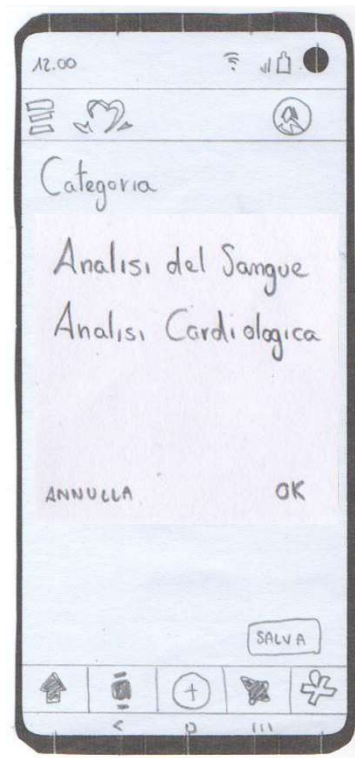 12.00
Categoria
Analisi del Sangue
Analisi Cardiologica
ANNULLA OK
SALVA